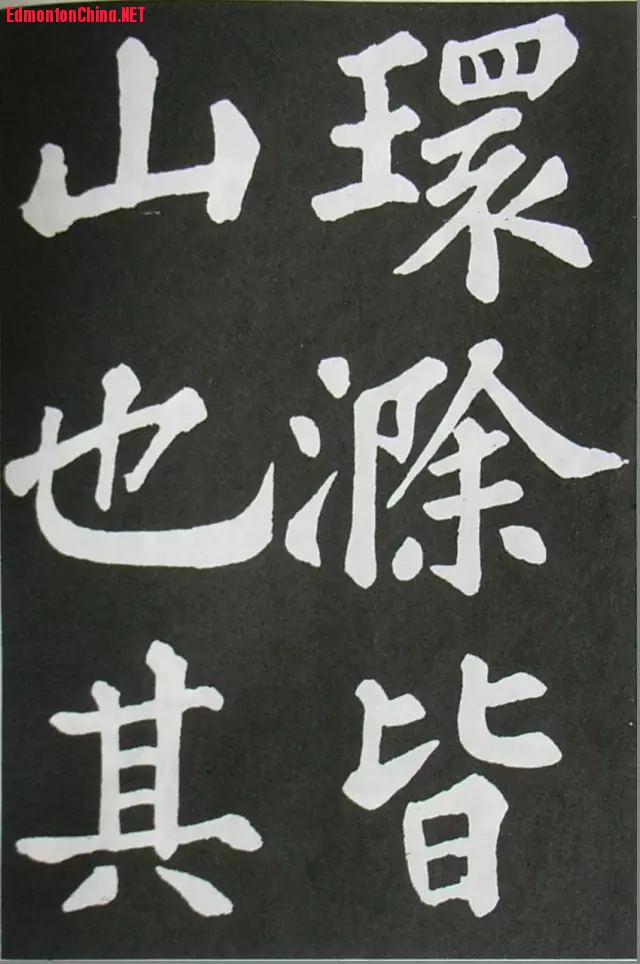 EdmontonChina.NET
環滁皆
山也其